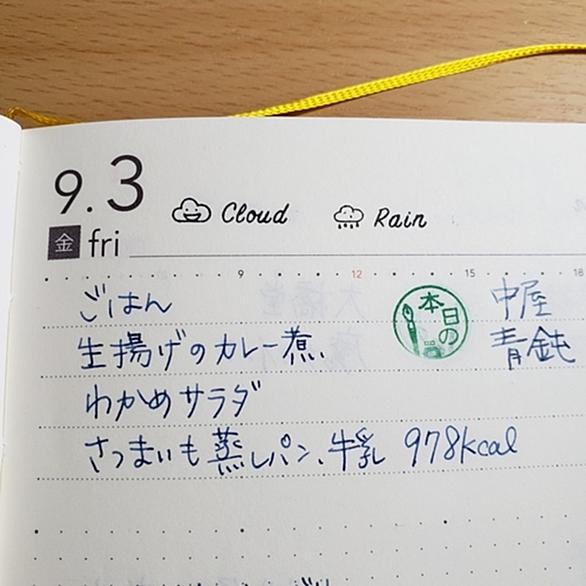 9.3
金 fri
Cloud Rain
9 12 15 18
ごはん
生揚げのカレー煮、
わかめサラダ
さつまいも蒸しパン、牛乳 978kcal
本日の
中屋
青鈍